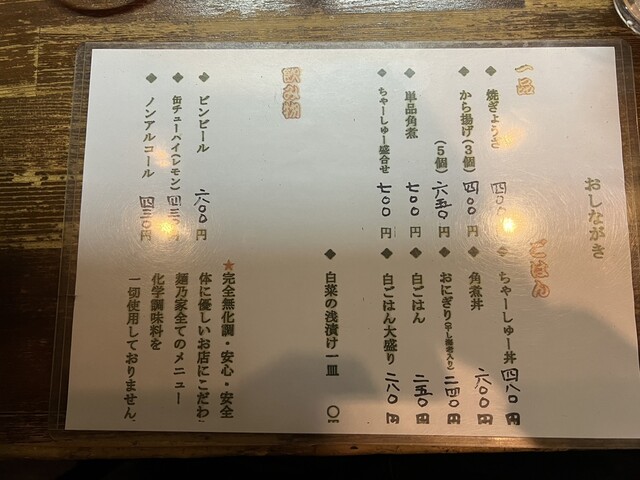 おしながき
一品
◆ 焼ぎょうざ 四〇〇円
◆ から揚げ(3個) 四〇〇円
(5個) 六五〇円
◆ 単品角煮 七〇〇円
◆ ちゃーしゅー盛合せ 七〇〇円
ごはん
◆ ちゃーしゅー丼 四八〇円
◆ 角煮丼 六〇〇円
◆ おにぎり 二四〇円
◆ 白ごはん 二五〇円
◆ 白ごはん大盛り 二八〇円
◆ 白菜の浅漬け一皿
飲み物
◆ ビンビール 六〇〇円
◆ 缶チューハイ(レモン) 四三〇円
◆ ノンアルコール 四三〇円
★完全無化調・安心・安全
体に優しいお店にこだわり
麺乃家全てのメニュー
化学調味料を
一切使用しておりません。